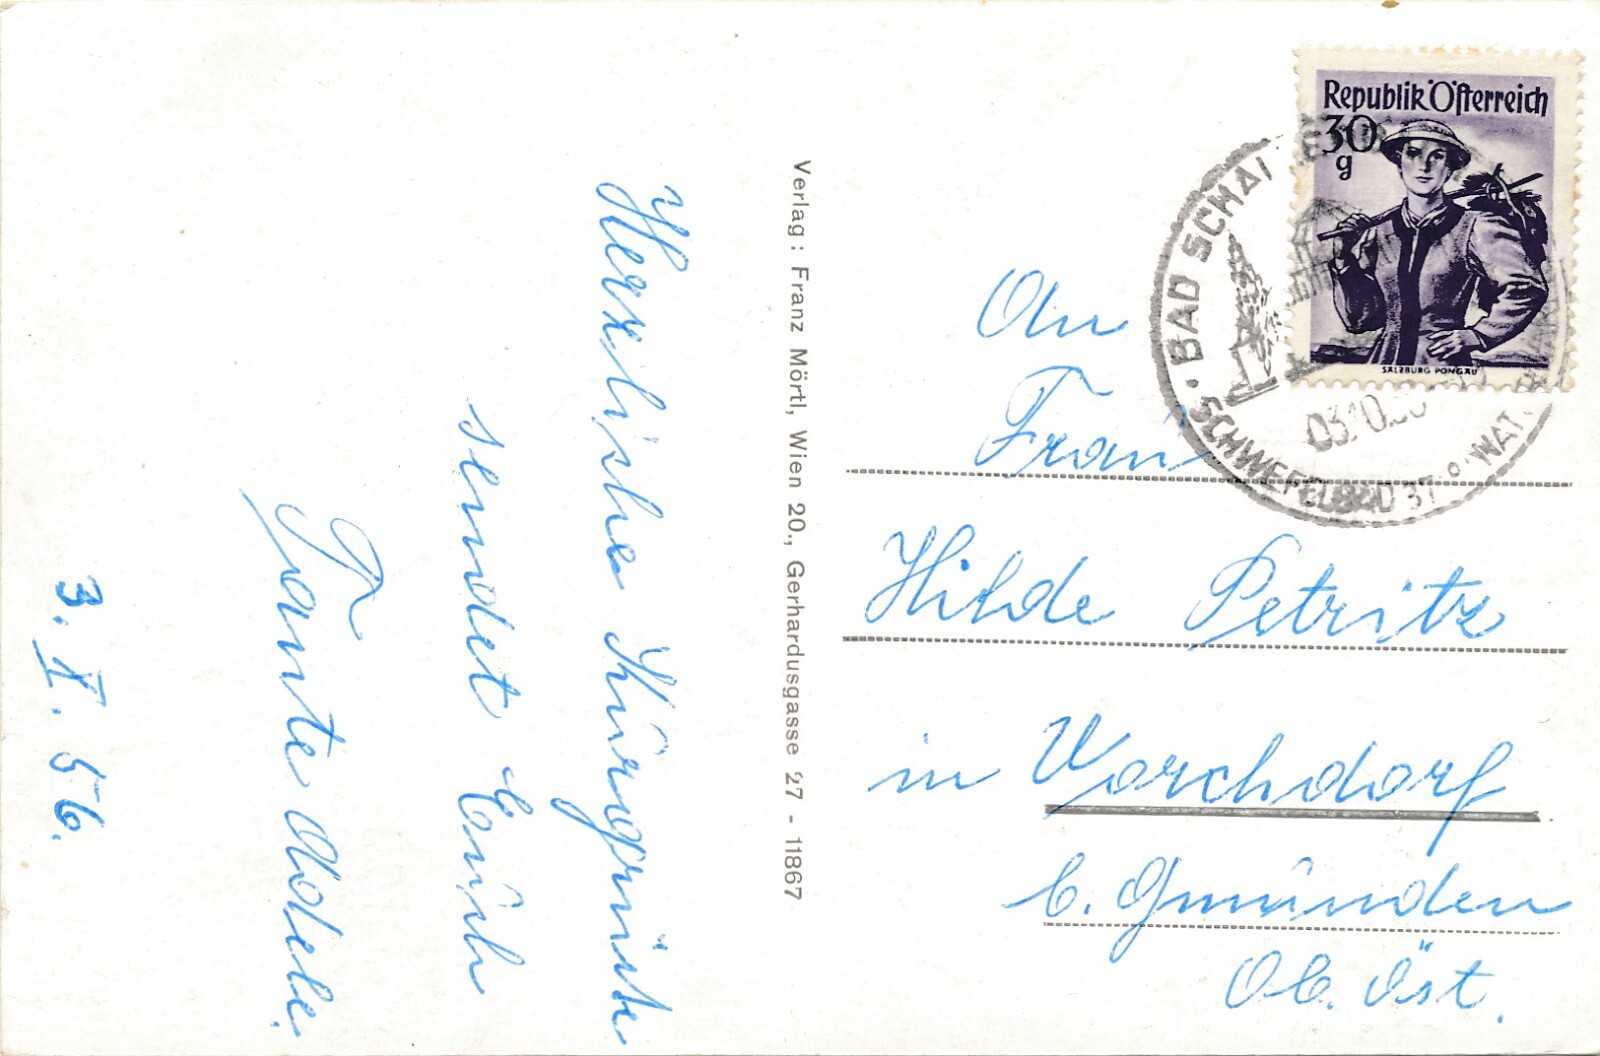 Herzliche Kurgrüße
sendet Euch
Tante Adele.
3. X. 56.
Verlag: Franz Mörtl, Wien 20., Gerhardusgasse 27 - 11867
Republik Österreich
30
g
SALZBURG PONGAU
BAD SCHAL
03.10.56
SCHWEFELBAD 37° WAT.
An
Frau
Hilde Petritz
in Vorchdorf
b. Gmünden
Ob. Öst.